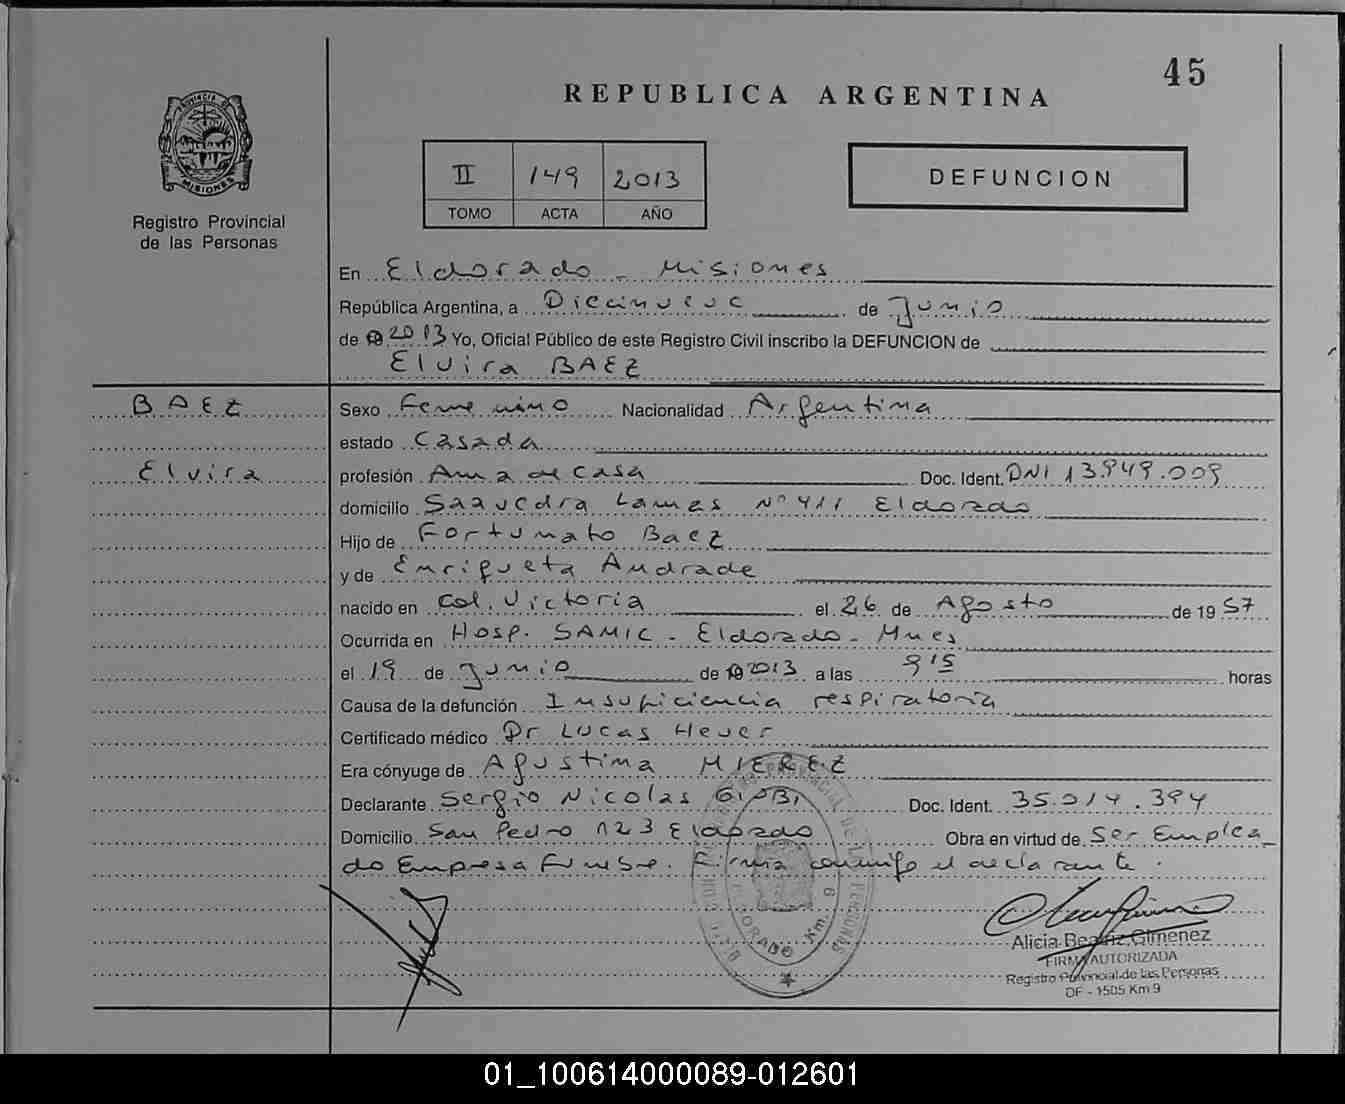 45
REPUBLICA ARGENTINA
PROVINCIA DE
MISIONES
Registro Provincial
de las Personas
II 149 2013
TOMO ACTA AÑO
DEFUNCION
En Eldorado - Misiones
República Argentina, a Diecinueve de Junio
de 2013 Yo, Oficial Público de este Registro Civil inscribo la DEFUNCION de
Elvira BAEZ
BAEZ
Elvira
Sexo Femenino Nacionalidad Argentina
estado Casada
profesión Ama de casa Doc. Ident. DNI 13.949.009
domicilio Saavedra Lamas Nº 411 Eldorado
Hijo de Fortunato Baez
y de Enriqueta Andrade
nacido en Col. Victoria el 26 de Agosto de 1957
Ocurrida en Hosp. SAMIC - Eldorado - Mnes
el 19 de Junio de 2013 a las 9 15 horas
Causa de la defunción Insuficiencia respiratoria
Certificado médico Dr Lucas Hever
Era cónyuge de Agustina MIEREZ
Declarante Sergio Nicolas GIOBI Doc. Ident. 35.014.394
Domicilio San Pedro 123 Eldorado Obra en virtud de Ser Emplea_
do Empresa Funebre. Firma conmigo el declarante.
Alicia Beatriz Gimenez
FIRMA AUTORIZADA
Registro Provincial de las Personas
DF - 1505 Km 9
01_100614000089-012601